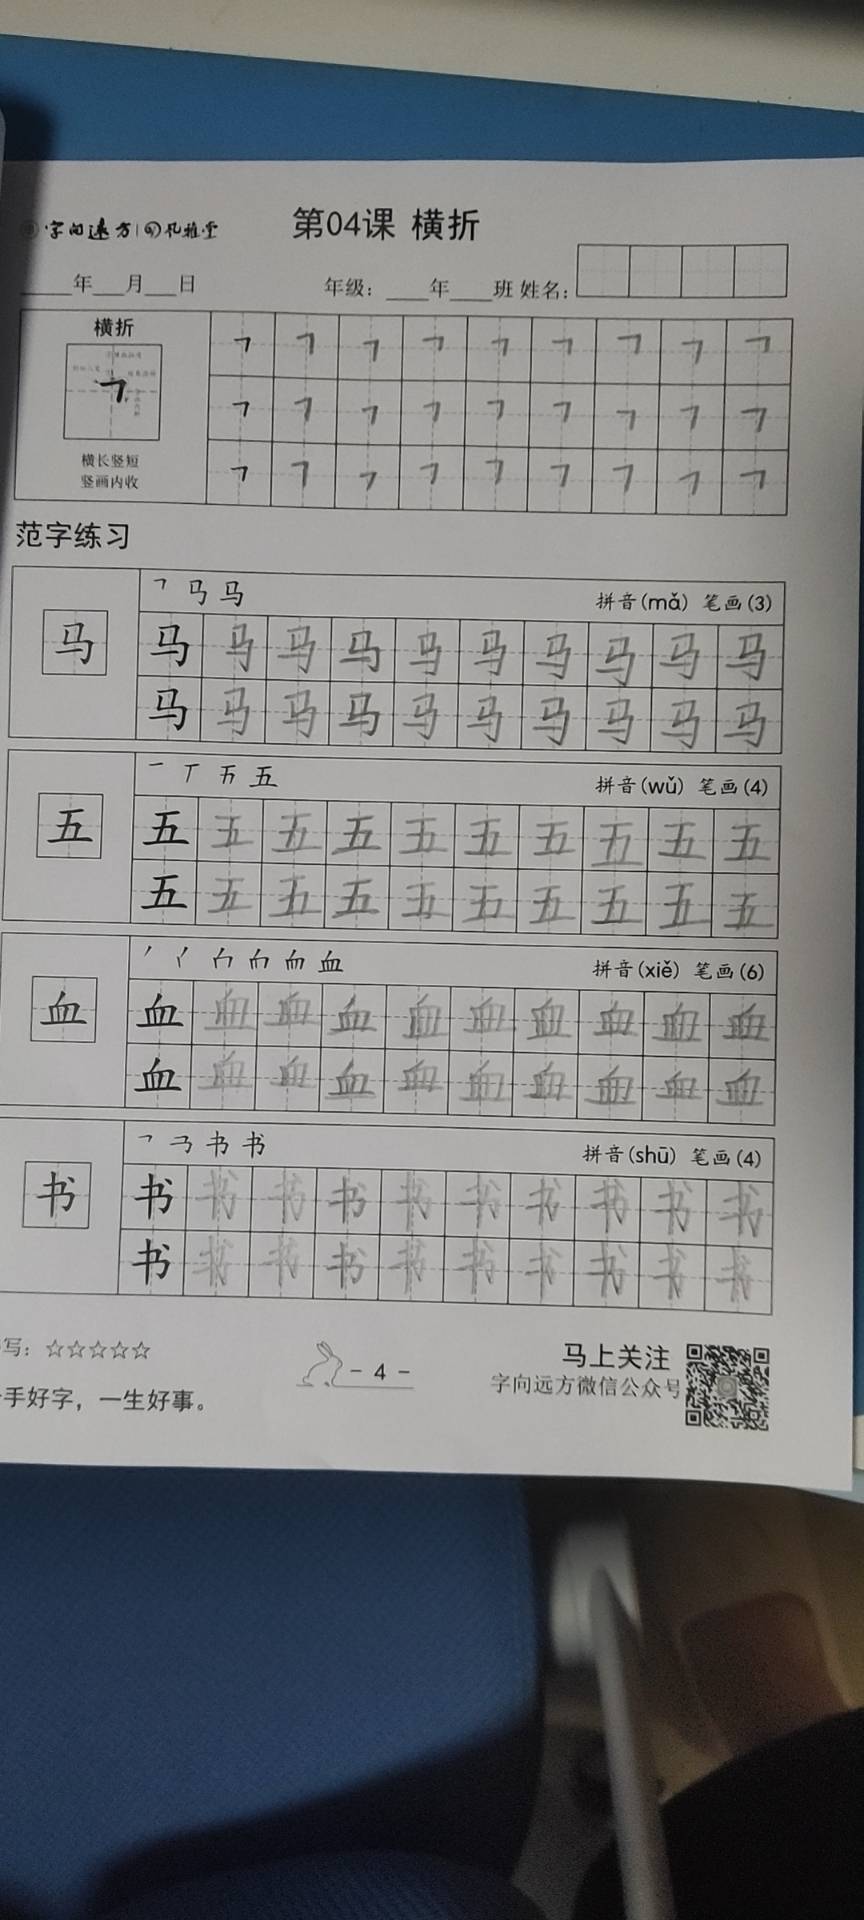 字向远方 孔雅堂
第04课 横折
年 月 日 年级： 年 班 姓名：
横折
横长竖短
竖画内收
范字练习
马 马
拼音(mǎ) 笔画(3)
马 马 马 马 马 马 马 马 马 马 马
马 马 马 马 马 马 马 马 马 马
一 丅 五
拼音(wǔ) 笔画(4)
五 五 五 五 五 五 五 五 五 五 五
五 五 五 五 五 五 五 五 五 五
血
拼音(xiě) 笔画(6)
血 血 血 血 血 血 血 血 血 血 血
血 血 血 血 血 血 血 血 血 血
书 书
拼音(shū) 笔画(4)
书 书 书 书 书 书 书 书 书 书 书
书 书 书 书 书 书 书 书 书 书
写：☆☆☆☆☆
手好字，一生好事。
- 4 -
马上关注
字向远方微信公众号